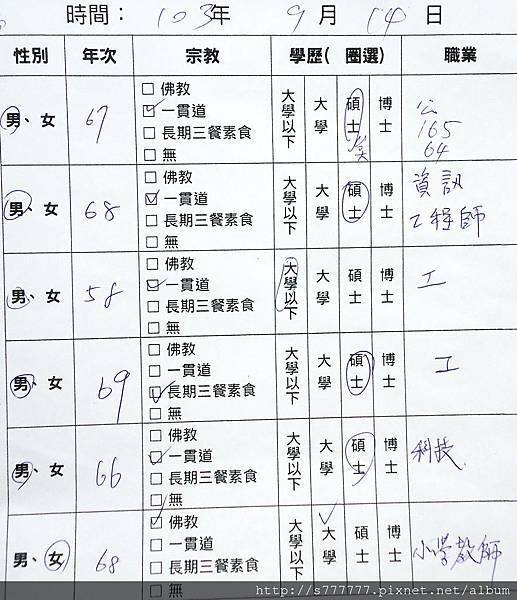 時間： 103年 9月 14日
性別 年次 宗教 學歷( 圈選) 職業
男、女 67 □佛教 大學以下 大學 碩士 博士 公
☑一貫道 165
□長期三餐素食 64
□無
男、女 68 □佛教 大學以下 大學 碩士 博士 資訊
☑一貫道 工程師
□長期三餐素食
□無
男、女 58 □佛教 大學以下 大學 碩士 博士 工
☑一貫道
□長期三餐素食
□無
男、女 69 □佛教 大學以下 大學 碩士 博士 工
□一貫道
☑長期三餐素食
□無
男、女 66 □佛教 大學以下 大學 碩士 博士 科技
☑一貫道
□長期三餐素食
□無
男、女 68 ☑佛教 大學以下 大學 碩士 博士 小學教師
□一貫道
□長期三餐素食
□無
http://s777777.pixnet.net/album